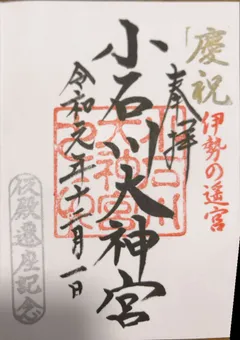 慶祝
伊勢の遥宮
奉拝
小石川大神宮
令和元年十二月一日
仮殿遷座記念